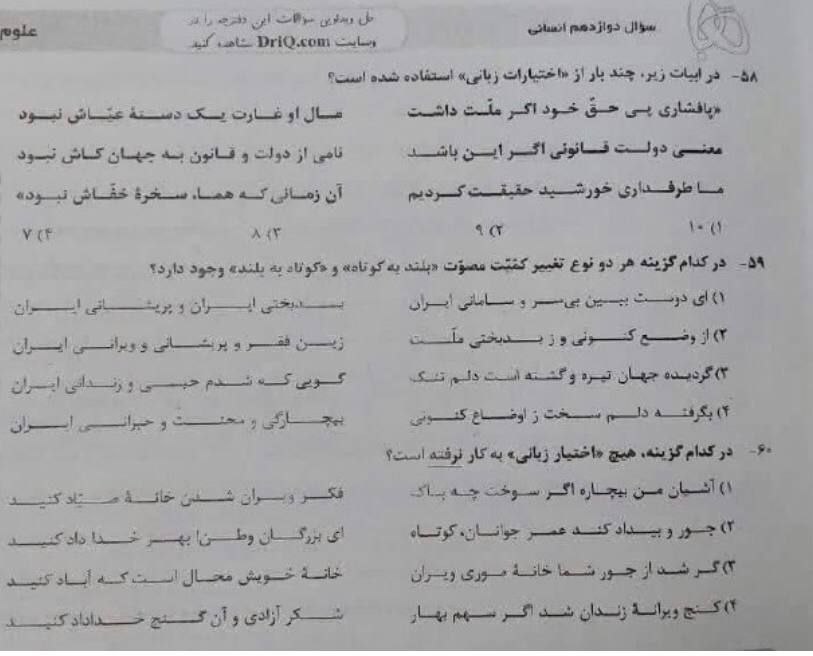 علوم
سؤال دوازدهم انسانی
حل ویدئویی سؤالات این دفترچه را در
وبسایت DriQ.com مشاهده کنید
۵۸- در ابیات زیر، چند بار از «اختیارات زبانی» استفاده شده است؟
«پافشاری پی حقّ خود اگر ملّت داشت مال او غارت یک دستهٔ عیّاش نبود
معنی دولت قانونی اگر این باشد نامی از دولت و قانون به جهان کاش نبود
ما طرفداری خورشید حقیقت کردیم آن زمانی که هما، سخرهٔ خفّاش نبود»
۱) ۱۰ ۲) ۹ ۳) ۸ ۴) ۷
۵۹- در کدام گزینه هر دو نوع تغییر کمّیّت مصوّت «بلند به کوتاه» و «کوتاه به بلند» وجود دارد؟
۱) ای دوست ببین بی‌سر و سامانی ایران بدبختی ایران و پریشانی ایران
۲) از وضع کنونی و ز بدبختی ملّت زین فقر و پریشانی و ویرانی ایران
۳) گردیده جهان تیره و گشته است دلم تنگ گویی که شدم حبسی و زندانی ایران
۴) بگرفته دلم سخت ز اوضاع کنونی بیچارگی و محنت و حیرانی ایران
۶۰- در کدام گزینه، هیچ «اختیار زبانی» به کار نرفته است؟
۱) آشیان من بیچاره اگر سوخت چه باک فکر ویران شدن خانهٔ صیّاد کنید
۲) جور و بیداد کند عمر جوانان، کوتاه ای بزرگان وطن! بهر خدا داد کنید
۳) گر شد از جور شما خانهٔ موری ویران خانهٔ خویش محال است که آباد کنید
۴) کنج ویرانهٔ زندان شد اگر سهم بهار شکر آزادی و آن گنج خداداد کنید